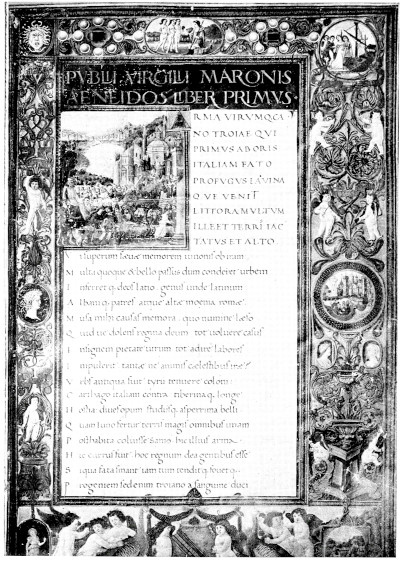 PVBLII VIRGILII MARONIS
AENEIDOS LIBER PRIMVS
RMA VIRVMQ CA
NO TROIAE QVI
PRIMVS ABORIS
ITALIAM FATO
PROFVGVS LAVINA
QVE VENIT
LITTORA MVLTVM
ILLE ET TERRIS IAC
TATVS ET ALTO
Vi superum saeuae memorem iunonis ob iram
Multa quoque & bello passus dum conderet urbem
Inferret q; deos latio genus unde latinum
Albani q; patres atque altae moenia romae
Musa mihi causas memora quo numine laeso
Quid ue dolens regina deum tot uoluere casus
Insignem pietate uirum tot adire labores
Impulerit tantae ne animis caelestibus irae?
Vrbs antiqua fuit tyrii tenuere coloni
Carthago italiam contra tiberina q; longe
Hostia diues opum studiisq; asperrima belli
Quam iuno fertur terris magis omnibus unam
Posthabita coluisse samo hic illius arma
Hic currus fuit hoc regnum dea gentibus esse
Siqua fata sinant iam tum tendit q; fouet q;
Progeniem sed enim troiano a sanguine duci